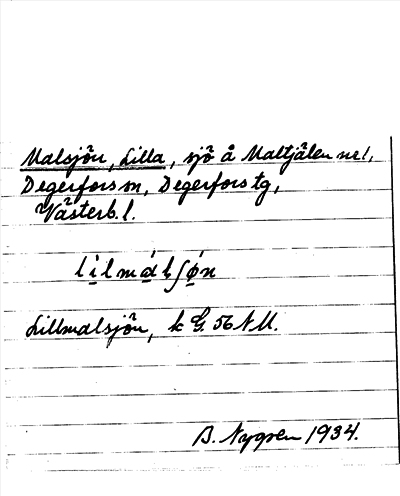 Malsjön, Lilla, sjö å Maltjälen nr 1,
Degerfors sn, Degerfors tg,
Västerb. l.
Lillmalsjön, k G. 56 NU.
B. Nygren 1934.